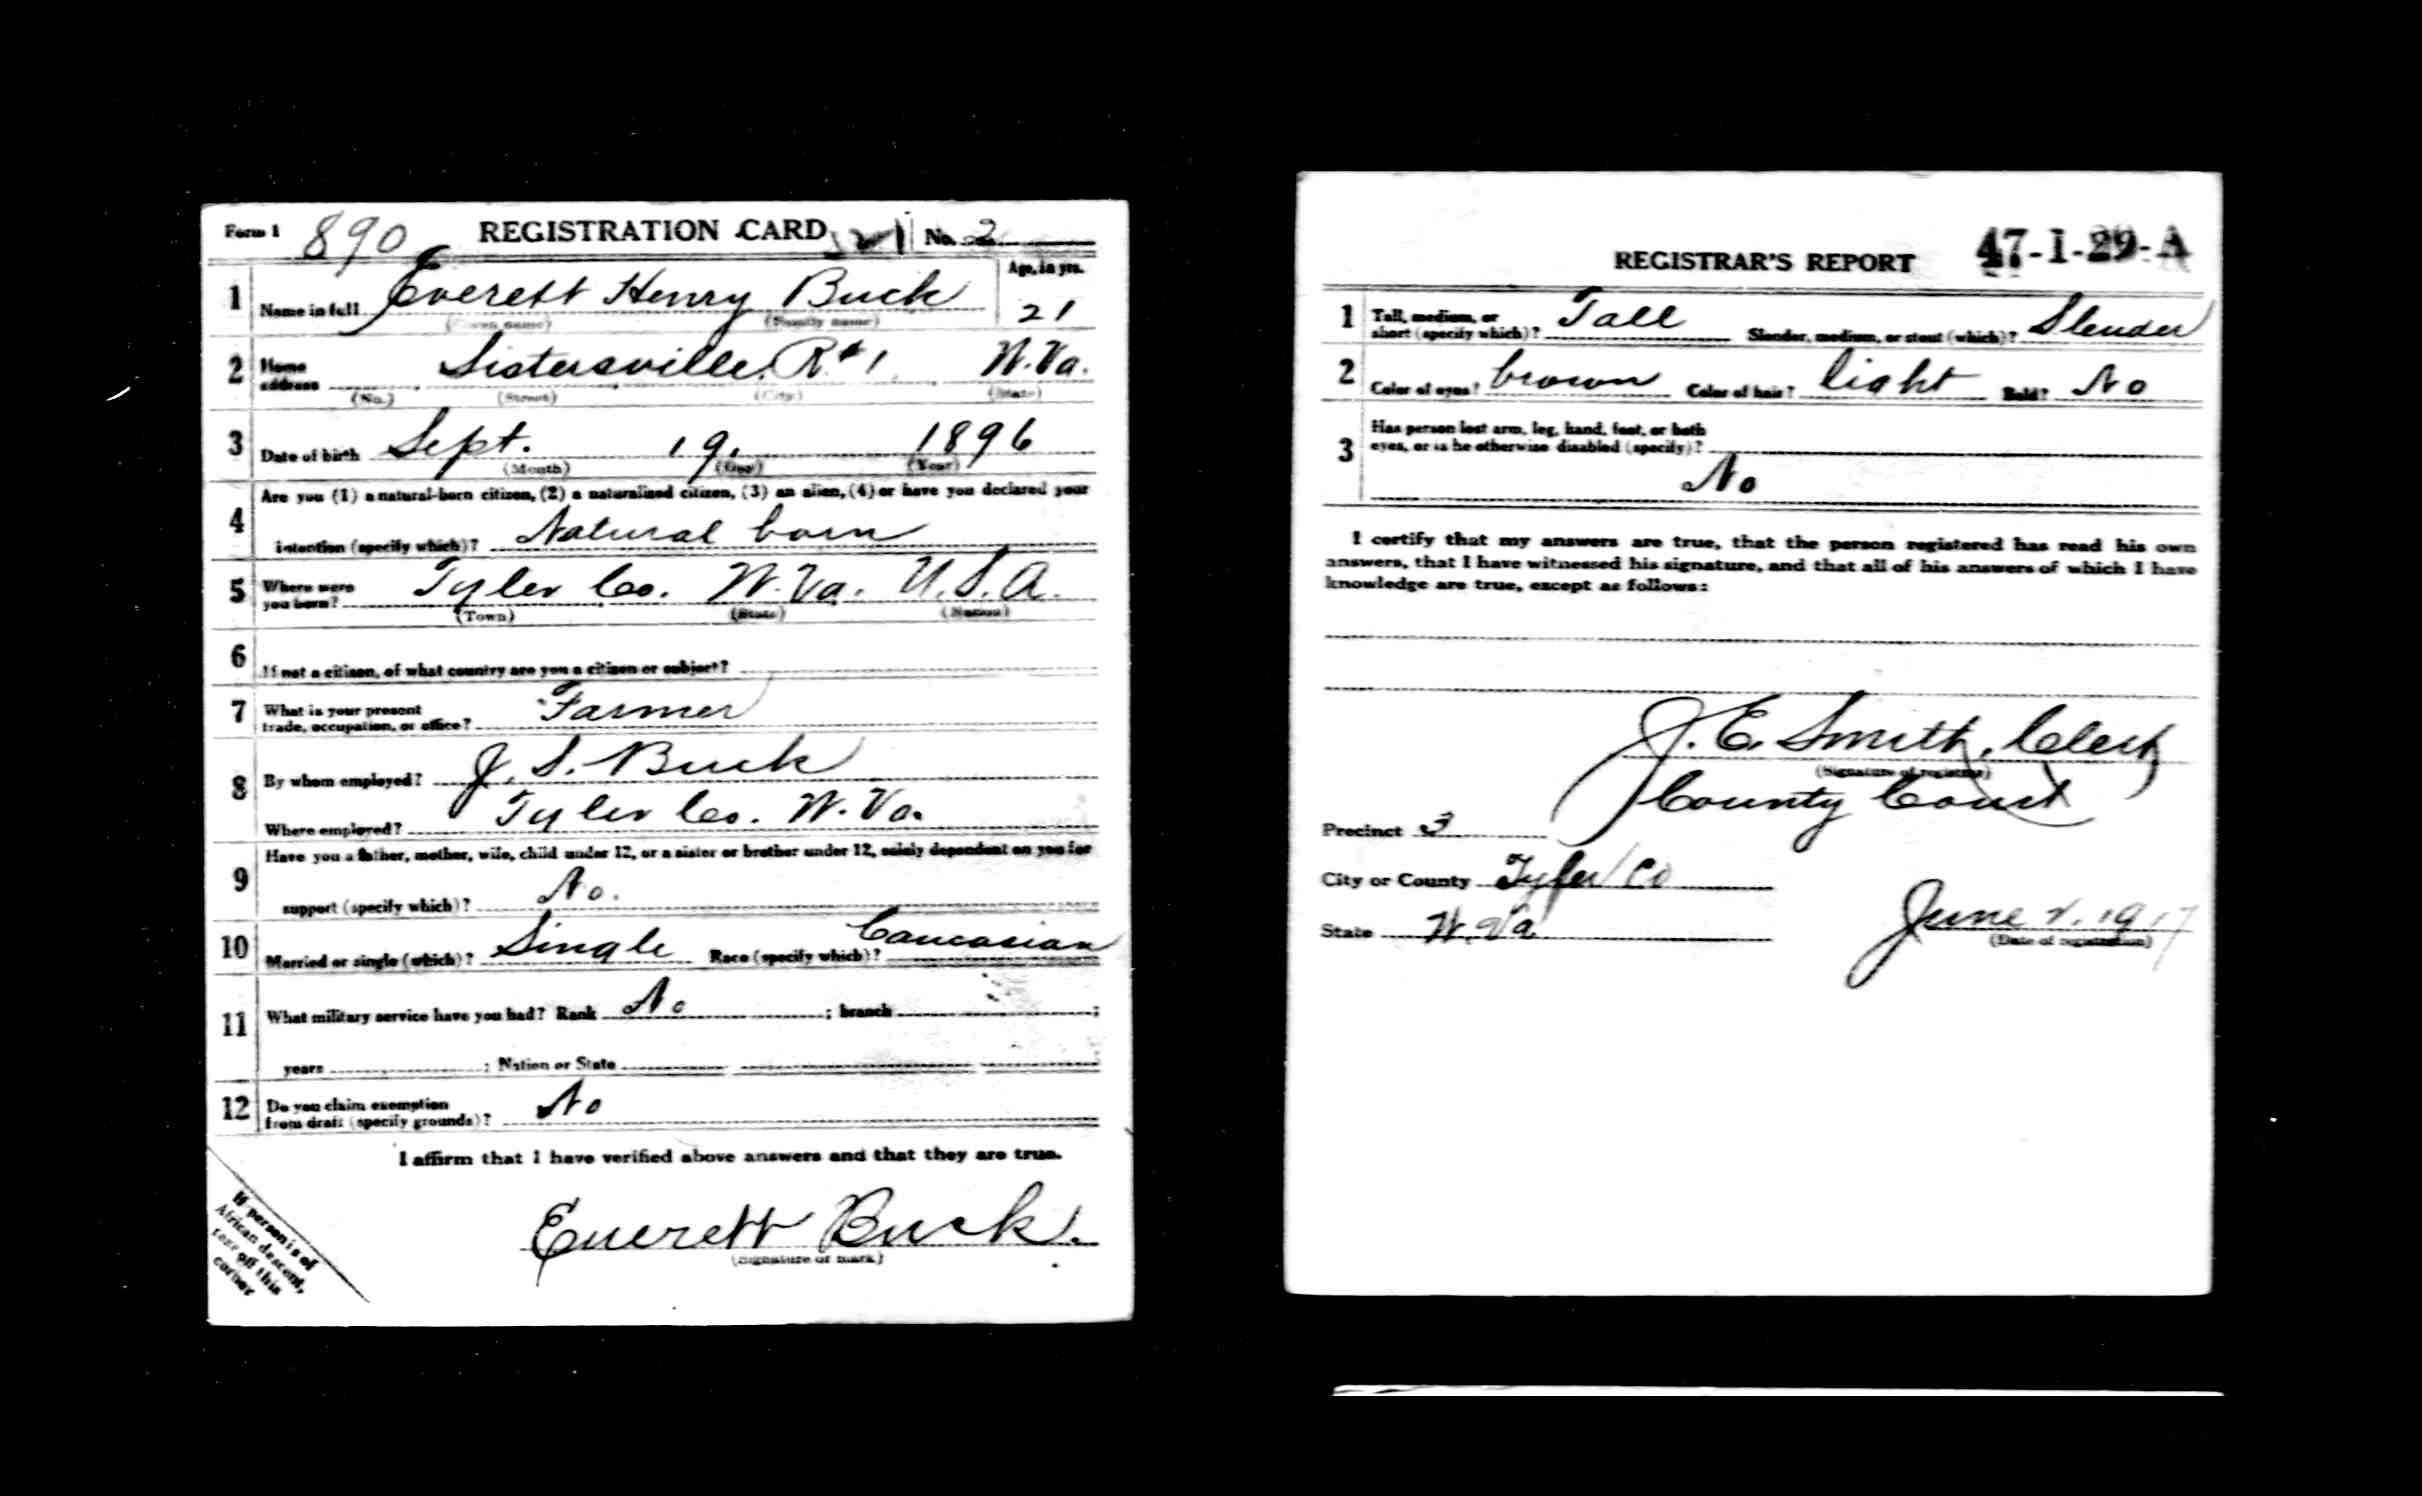 Form 1 890 REGISTRATION CARD No. 2
Age, in yrs.
1 Name in full Everett Henry Buck 21
(Given name) (Family name)
2 Home address Sistersville, R#1, W.Va.
(No.) (Street) (City) (State)
3 Date of birth Sept. 19, 1896
(Month) (Day) (Year)
Are you (1) a natural-born citizen, (2) a naturalized citizen, (3) an alien, (4) or have you declared your
4 intention (specify which)? Natural born
5 Where were you born? Tyler Co. W.Va. U.S.A.
(Town) (State) (Nation)
6 If not a citizen, of what country are you a citizen or subject?
7 What is your present
trade, occupation, or office? Farmer
8 By whom employed? J. S. Buck
Where employed? Tyler Co. W.Va.
Have you a father, mother, wife, child under 12, or a sister or brother under 12, solely dependent on you for
9 support (specify which)? No.
10 Married or single (which)? Single Race (specify which)? Caucasian
11 What military service have you had? Rank No ; branch ;
years ; Nation or State
12 Do you claim exemption
from draft (specify grounds)? No
I affirm that I have verified above answers and that they are true.
Everett Buck.
(Signature or mark)
If person is of
African descent,
tear off this
corner
REGISTRAR'S REPORT 47-1-29-A
1 Tall, medium, or
short (specify which)? Tall Slender, medium, or stout (which)? Slender
2 Color of eyes? brown Color of hair? light Bald? No
Has person lost arm, leg, hand, foot, or both
3 eyes, or is he otherwise disabled (specify)?
No
I certify that my answers are true, that the person registered has read his own
answers, that I have witnessed his signature, and that all of his answers of which I have
knowledge are true, except as follows:
J. E. Smith, Clerk
(Signature of registrar)
County Court
Precinct 3
City or County Tyler Co
State W.Va
June 2. 1917
(Date of registration)